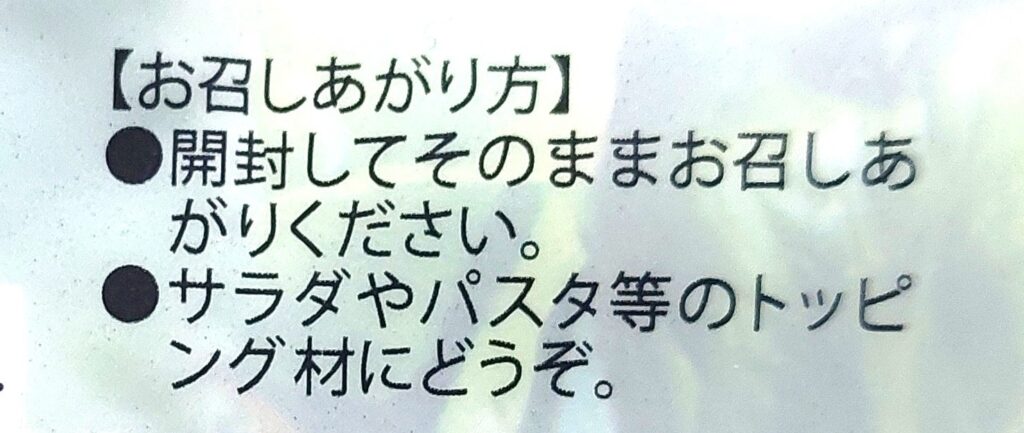 【お召しあがり方】
●開封してそのままお召しあ
がりください。
●サラダやパスタ等のトッピ
ング材にどうぞ。